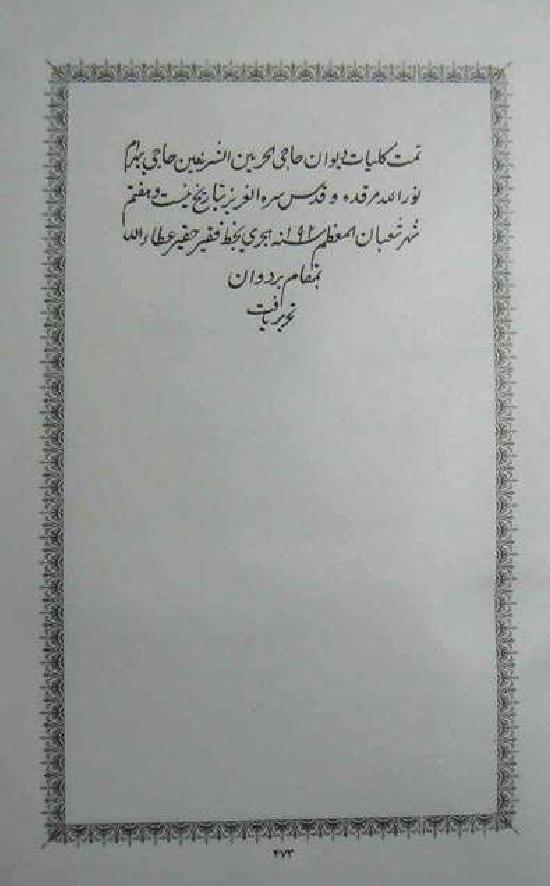 تمت کلیات دیوان حاجی الحرمین الشریفین حاجی بهرام
نور الله مرقده و قدس سره العزیز بتاریخ بیست و هفتم
شهر شعبان المعظم سنه ۱۱۹۲ هجری بخط فقیر حقیر عطاء الله
بمقام بردوان
تحریر یافت
۴۷۳